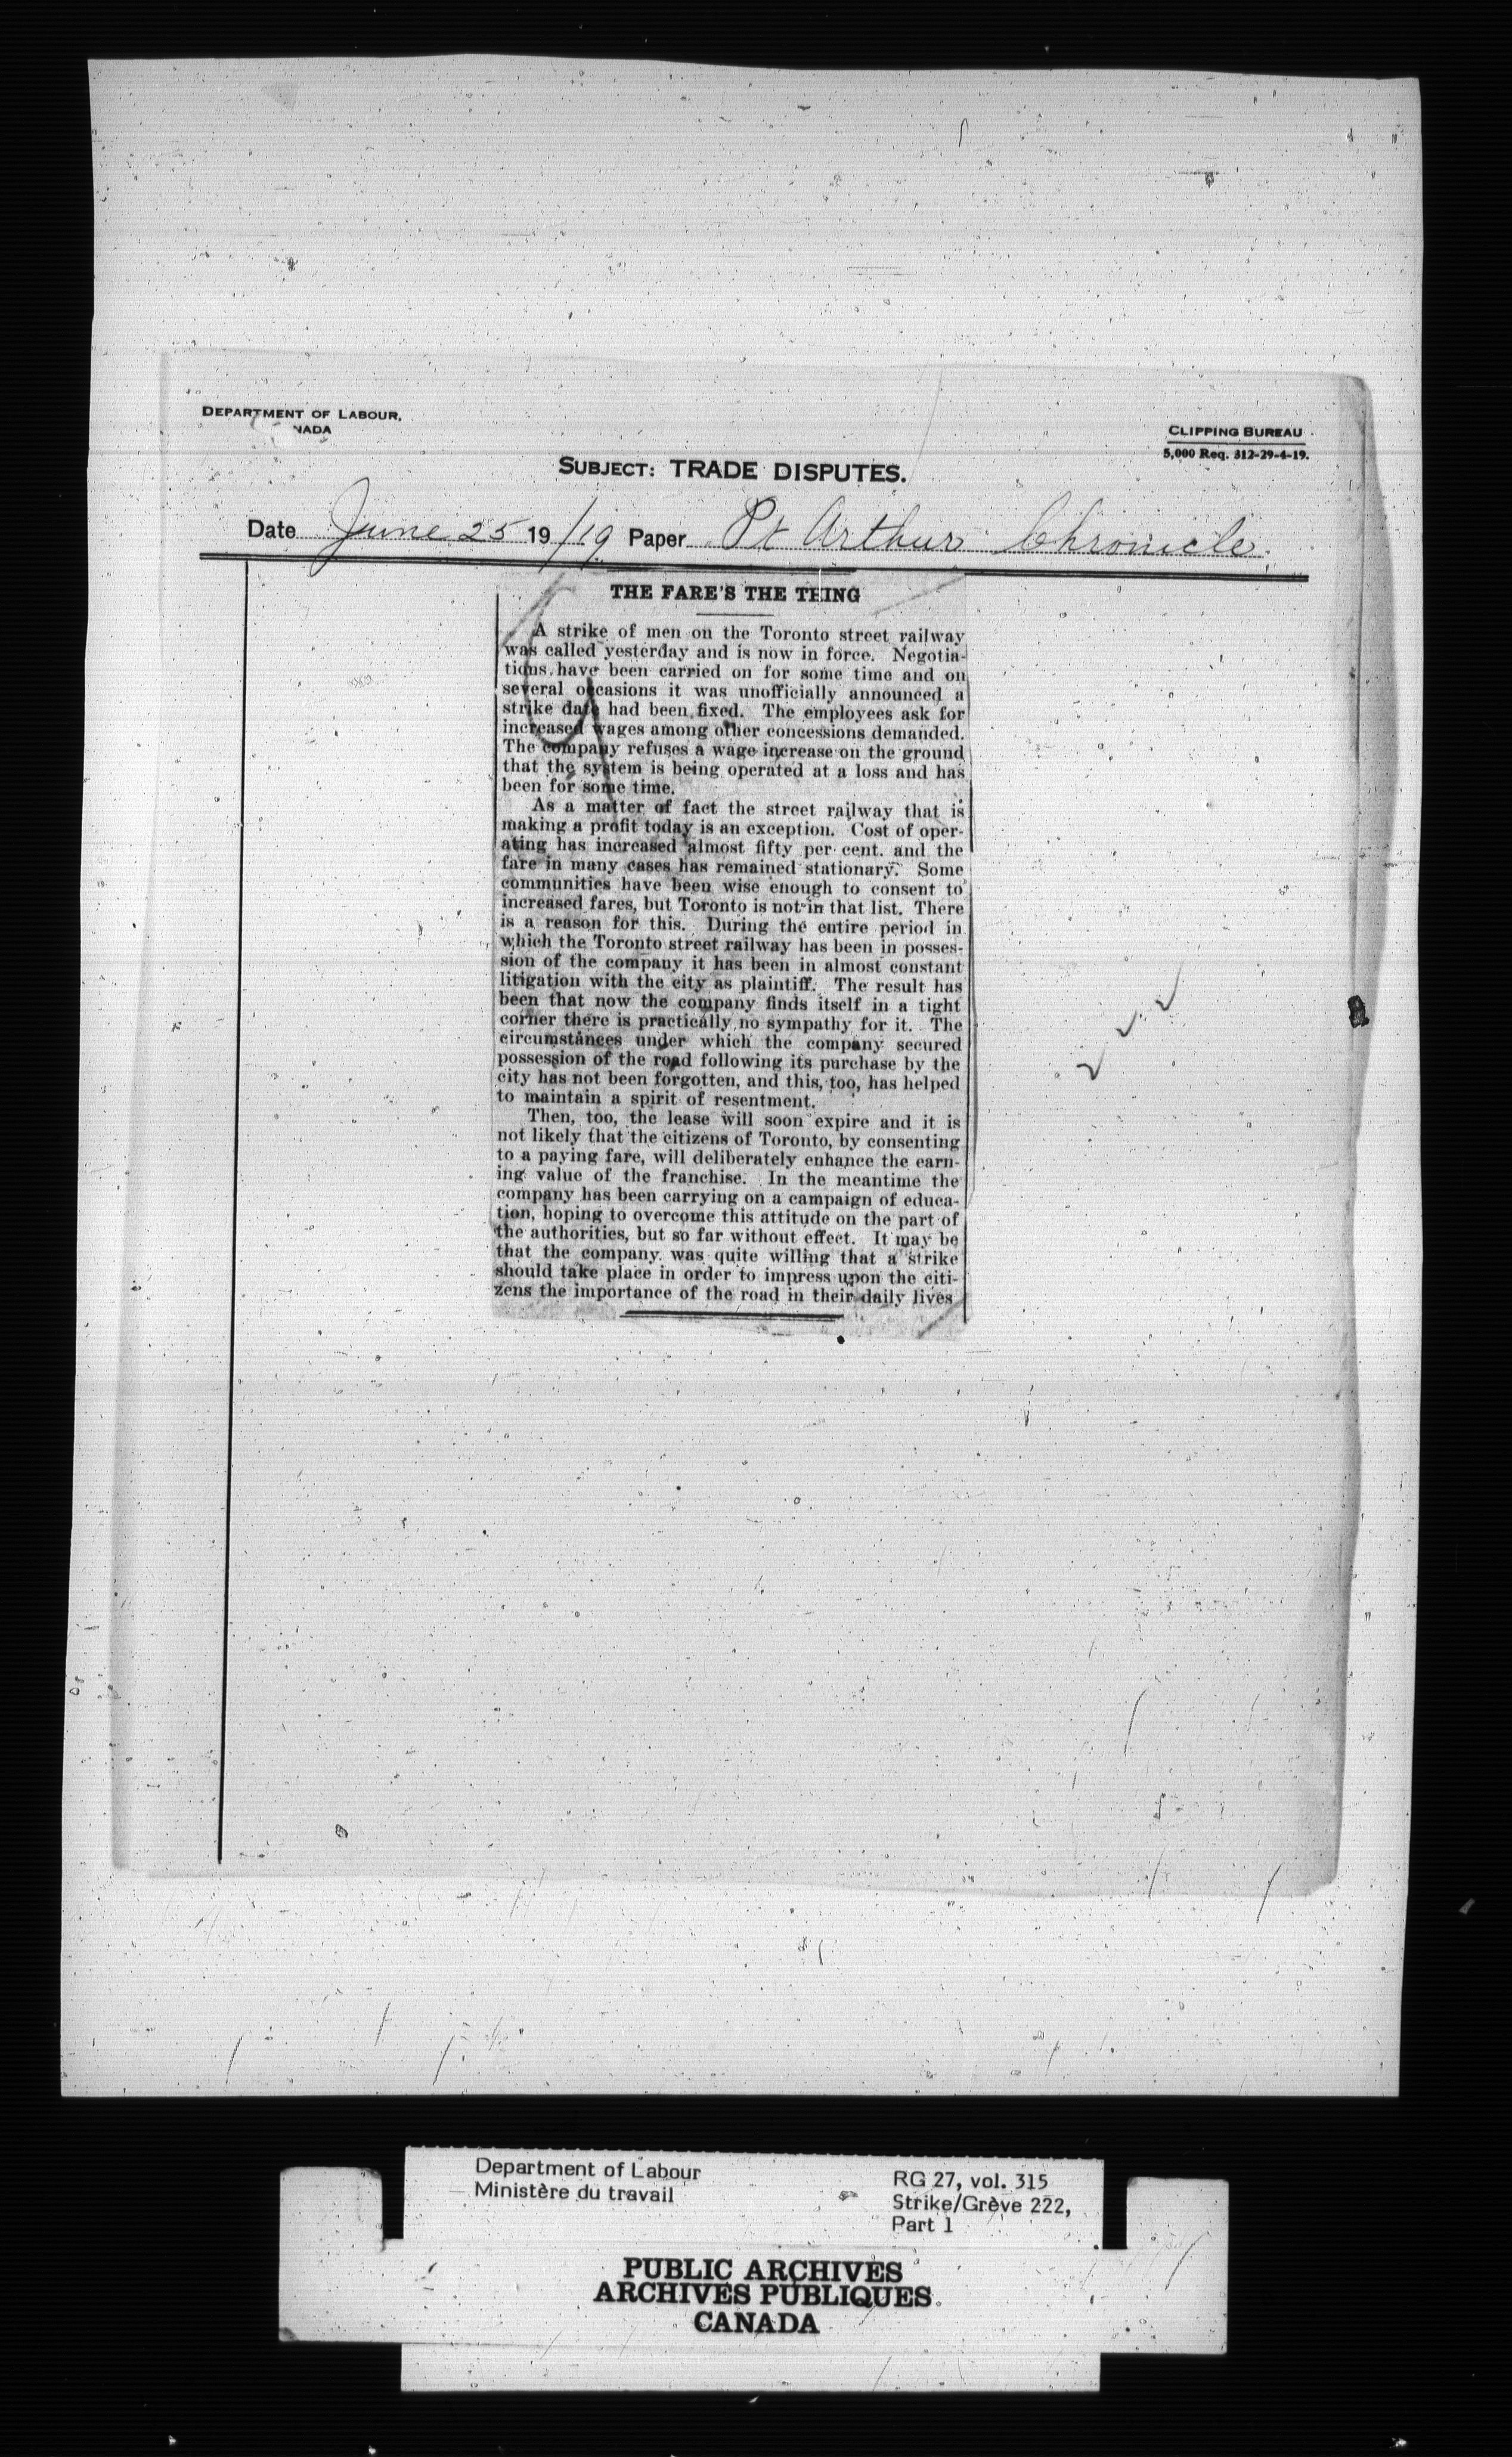 DEPARTMENT OF LABOUR,
NADA
CLIPPING BUREAU
5,000 Req. 312-29-4-19.
SUBJECT: TRADE DISPUTES.
Date June 25 19/19 Paper Pt Arthur Chronicle
THE FARE'S THE THING
A strike of men on the Toronto street railway
was called yesterday and is now in force. Negotia-
tions have been carried on for some time and on
several occasions it was unofficially announced a
strike date had been fixed. The employees ask for
increased wages among other concessions demanded.
The company refuses a wage increase on the ground
that the system is being operated at a loss and has
been for some time.
As a matter of fact the street railway that is
making a profit today is an exception. Cost of oper-
ating has increased almost fifty per cent. and the
fare in many cases has remained stationary. Some
communities have been wise enough to consent to
increased fares, but Toronto is not in that list. There
is a reason for this. During the entire period in
which the Toronto street railway has been in posses-
sion of the company it has been in almost constant
litigation with the city as plaintiff. The result has
been that now the company finds itself in a tight
corner there is practically no sympathy for it. The
circumstances under which the company secured
possession of the road following its purchase by the
city has not been forgotten, and this, too, has helped
to maintain a spirit of resentment.
Then, too, the lease will soon expire and it is
not likely that the citizens of Toronto, by consenting
to a paying fare, will deliberately enhance the earn-
ing value of the franchise. In the meantime the
company has been carrying on a campaign of educa-
tion, hoping to overcome this attitude on the part of
the authorities, but so far without effect. It may be
that the company was quite willing that a strike
should take place in order to impress upon the citi-
zens the importance of the road in their daily lives
Department of Labour
Ministère du travail
RG 27, vol. 315
Strike/Grève 222,
Part 1
PUBLIC ARCHIVES
ARCHIVES PUBLIQUES
CANADA